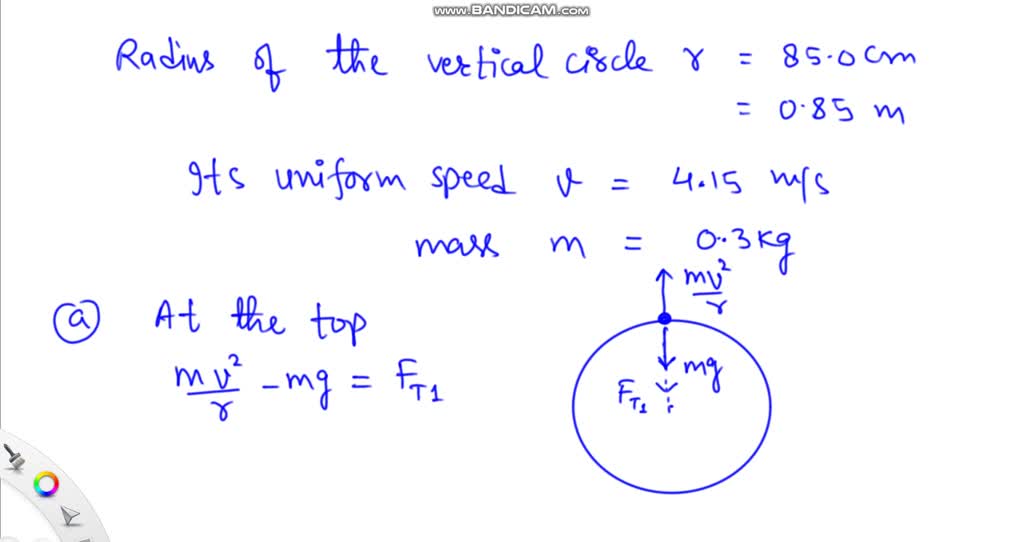 www.BANDICAM.com
Radius of the vertical circle r = 85.0 cm
= 0.85 m
Its uniform speed v = 4.15 m/s
mass m = 0.3 kg
mv²/r
(a) At the top
mg
mv²/r - mg = F_T1
F_T1